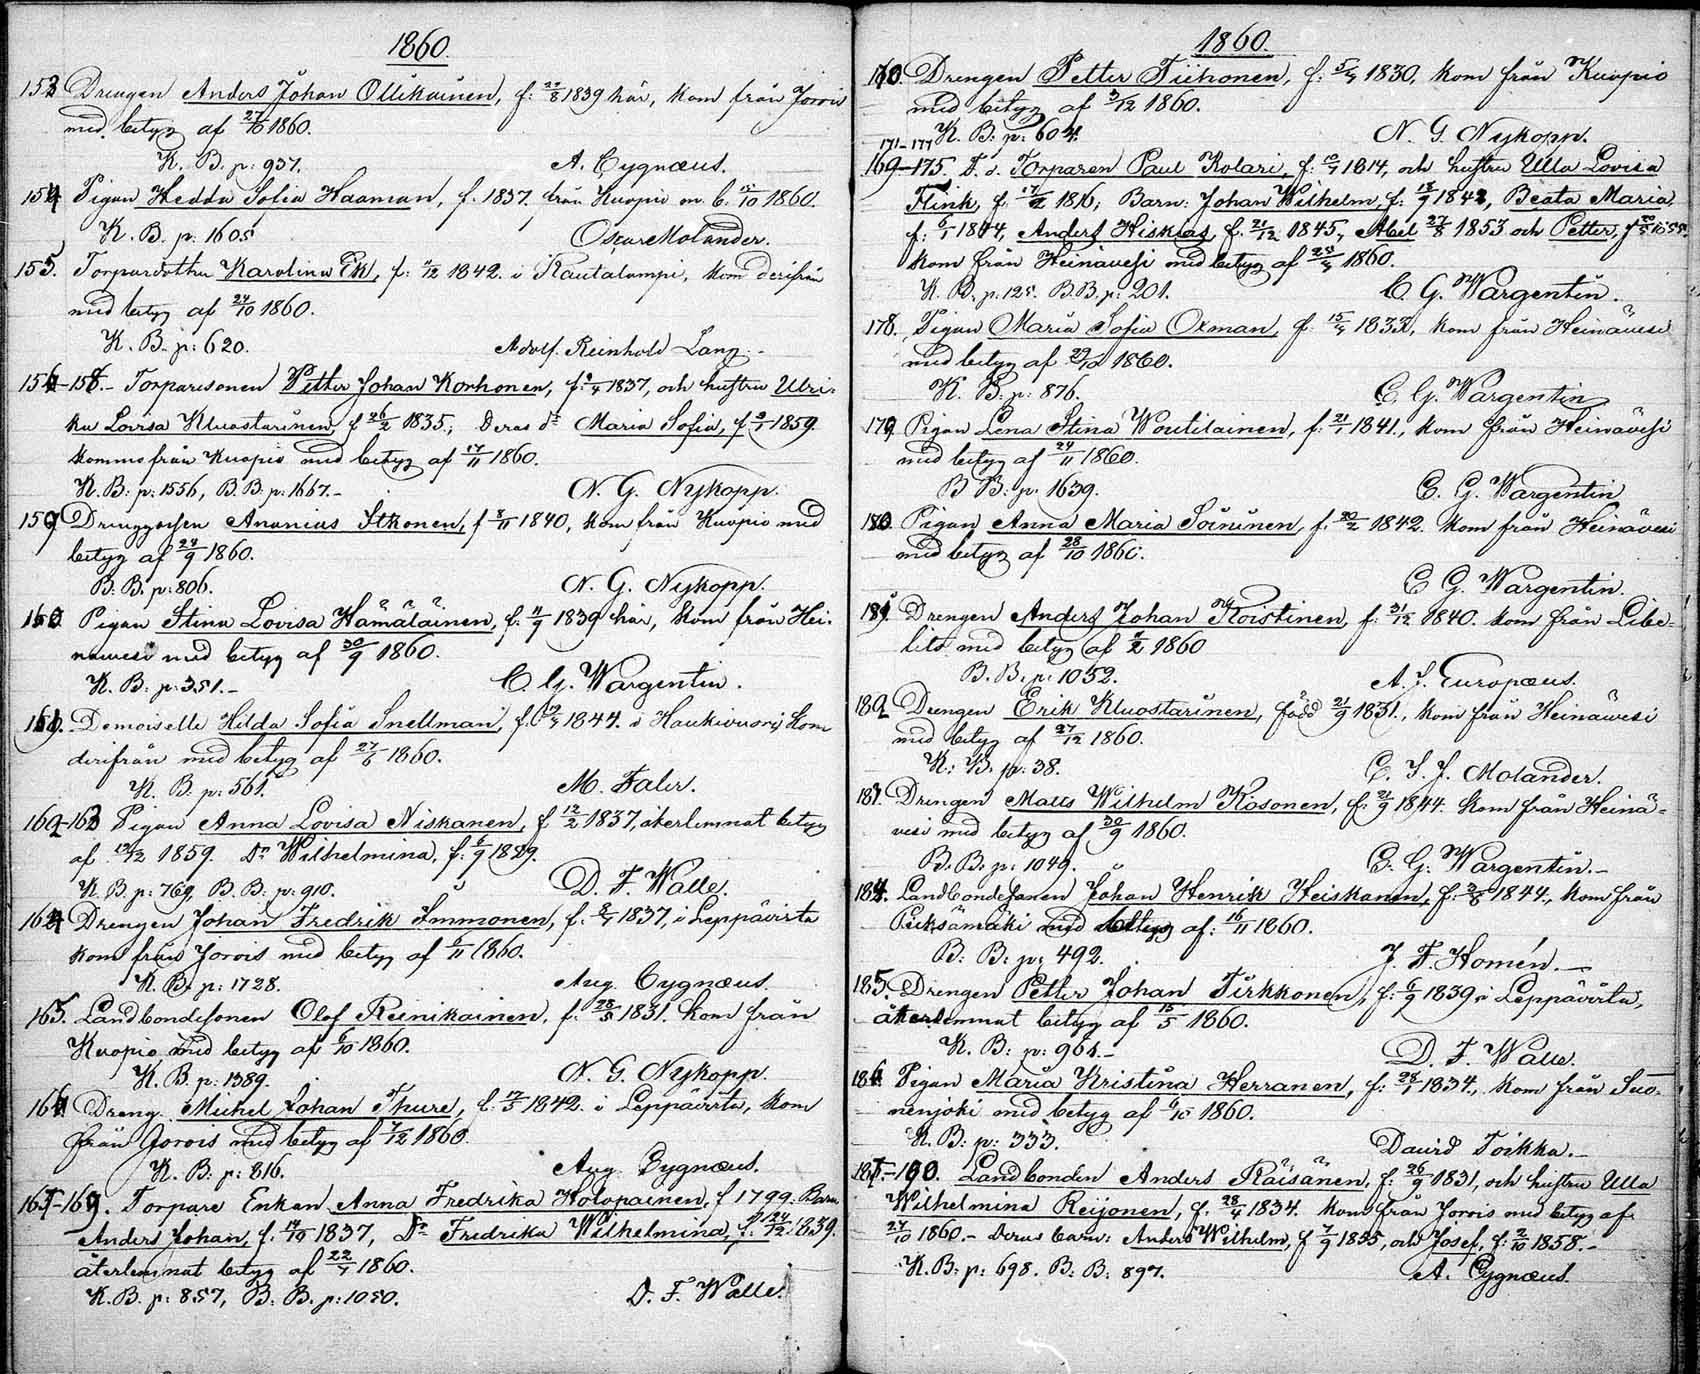 1860.
153 Drengen Anders Johan Ollikainen, f: 27/8 1839 här, kom från Jorois
med betyg af 27/10 1860.
K. B. p: 937. A. Cygnæus.
154 Pigan Hedda Sofia Haaman, f. 1837. från Kuopio m. b. 15/10 1860.
K. B. p: 1605 Oscar Molander.
155. Torparedottru Karolina Ek, f: 11/12 1842. i Rautalampi, kom derifrån
med betyg af 24/10 1860.
K. B. p: 620. Adolf Reinhold Lang.
156-158.- Torparesonen Petter Johan Korhonen, f: 1/4 1837, och hustru Ulri-
ka Lovisa Kluostarinen, f 26/2 1835., Deras dr Maria Sofia, f 2/1 1859.
komma från Kuopio med betyg af 17/11 1860.
K. B: p: 1556, B. B. p: 1667.- N. G. Nykopp.
159 Drenggossen Ananias Itkonen, f 8/11 1840, kom från Kuopio med
betyg af 24/9 1860.
B. B. p: 806. N. G. Nykopp.
160 Pigan Stina Lovisa Hämäläinen, f. 11/9 1839 här, kom från Hei-
nawesi med betyg af 30/9 1860.
K. B: p: 351.- C. G. Wargentin.
161. Demoiselle Hilda Sofia Snellman, f. 1844. i Haukivuori, kom
derifrån med betyg af 27/6 1860.
K. B. p: 561. M. Faler.
162-163 Pigan Anna Lovisa Niskanen, f 12/2 1837, återlemnat betyg
af 1859. Dr Wilhelmina, f: 5/9 1859.
K. B p: 769, B. B. p: 910. D. F. Walle.
164 Drengen Johan Fredrik Immonen, f: 8/4 1837, i Leppävirta
kom från Jorois med betyg af 6/11 1860.
K. B. p: 1728. Aug Cygnæus.
165. Landbondesonen Olof Reinikainen, f. 28/5 1831. kom från
Kuopio med betyg af 6/10 1860.
K. B. p: 1389. N. G. Nykopp.
166 Dreng. Michel Johan Thure, f. 17/5 1842. i Leppävirta, kom
från Jorois med betyg af 7/12 1860.
K. B: p: 816. Aug. Cygnæus.
167-169. Torpare Enkan Anna Fredrika Holopainen, f 1799. Barn
Anders Johan, f. 14/10 1837, Dr Fredrika Wilhelmina, f. 24/12 1839.
återlemnat betyg af 22/1 1860.
K. B. p: 857, B. B. p: 1050. D. F. Walle.
1860.
170. Drengen Petter Tiihonen, f: 5/4 1830, kom från Kuopio
med betyg af 3/12 1860.
K. B: p: 604. N. G. Nykopp.
171-177
169-175. F. d. Torparen Paul Kolari, f. 1814, och hustru Ulla Lovisa
Flink, f. 1816; Barn: Johan Wilhelm, f: 18/9 1842, Beata Maria
f: 6/1 1844, Anders Hiskias, f. 21/12 1845, Abel 27/8 1853 och Petter, f 1855.
kom från Heinävesi med betyg af 1860.
K. B. p: 125. B. B. p: 201. C. G. Wargentin.
178. Pigan Maria Sofia Oxman, f: 1833, kom från Heinävesi
med betyg af 29/10 1860.
K. B: p: 876. C. G. Wargentin
179. Pigan Lena Stina Woutilainen, f: 21/1 1841., kom från Heinävesi
med betyg af 24/11 1860.
B B: p: 1639. C. G. Wargentin
180. Pigan Anna Maria Soininen, f: 20/2 1842. kom från Heinävesi
med betyg af 28/10 1860.
C. G. Wargentin.
181. Drengen Anders Johan Koistinen, f: 31/12 1840. kom från Libe-
lits med betyg af 1860
B. B. p: 1052. A. J. Europæus.
182 Drengen Erik Kluostarinen, född 21/9 1831., kom från Heinäwesi
med betyg af 27/12 1860.
K: B. p: 38. C. S. J. Molander.
183. Drengen Matts Wilhelm Kosonen, f. 21/9 1844. kom från Heinä-
vesi med betyg af 30/9 1860.
B. B. p: 1049. C. G. Wargentin.-
184. Landbondesonen Johan Henrik Heiskanen, f: 1844., kom från
Pieksämäki med betyg af: 16/11 1860.
B: B: p: 492. J. F. Homén.-
185. Drengen Petter Johan Tirkkonen, f: 6/9 1839 i Leppävirta,
återlemnat betyg af 16/5 1860.
K. B: p: 961.- D. F. Walle.
186 Pigan Maria Kristina Herranen, f: 28/1 1834., kom från Suo-
nenjoki med betyg af 6/10 1860.
K. B: p: 333. David Toikka.-
187.-190. Landbonden Anders Räisänen, f: 26/9 1831, och hustru Ulla
Wilhelmina Reijonen, f. 28/4 1834. kom från Jorois med betyg af
27/10 1860.- Deras barn: Anders Wilhelm, f 7/9 1855, och Josef, f: 2/10 1858.-
K. B: p: 698. B: B: 897. A. Cygnæus.